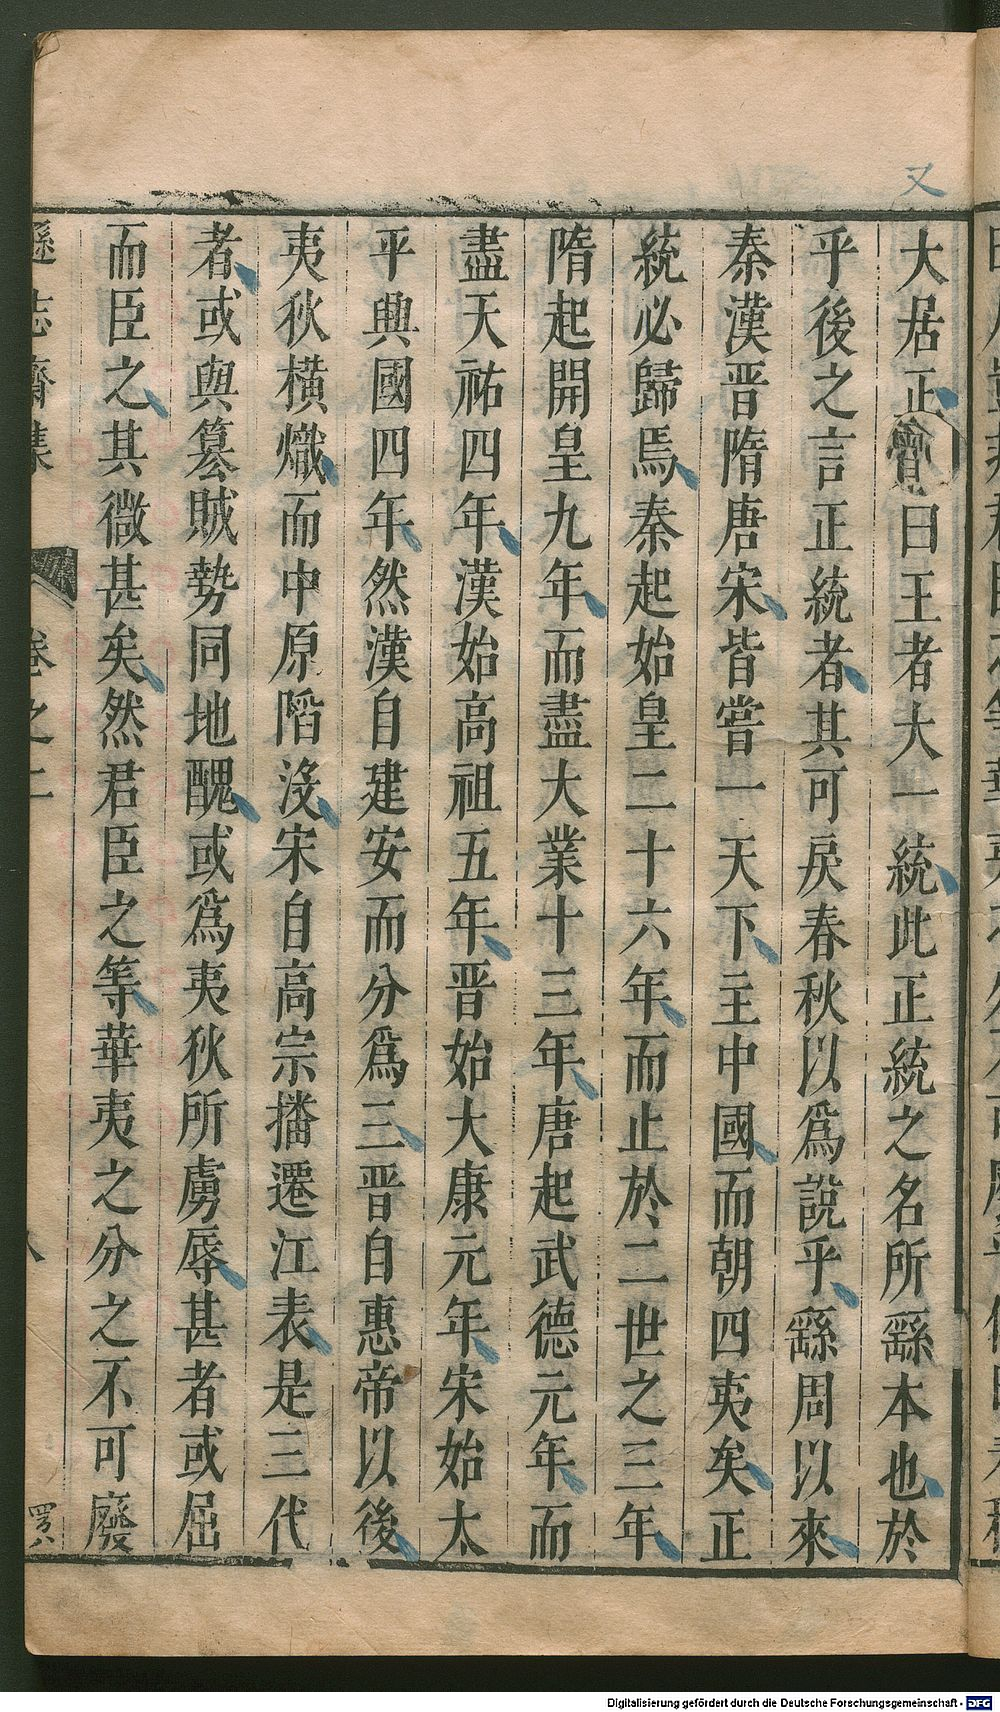 又
大居正會曰王者大一統此正統之名所繇本也於
乎後之言正統者其可戾春秋以爲說乎繇周以來
秦漢晋隋唐宋皆嘗一天下主中國而朝四夷矣正
統必歸焉秦起始皇二十六年而止於二世之三年
隋起開皇九年而盡大業十三年唐起武德元年而
盡天祐四年漢始高祖五年晋始大康元年宋始太
平興國四年然漢自建安而分爲三晋自惠帝以後
夷狄橫熾而中原陷沒宋自高宗播遷江表是三代
者或與簒賊勢同地醜或爲夷狄所虜辱甚者或屈
而臣之其微甚矣然君臣之等華夷之分之不可廢
遜志齋集 卷之二
Digitalisierung gefördert durch die Deutsche Forschungsgemeinschaft - DFG